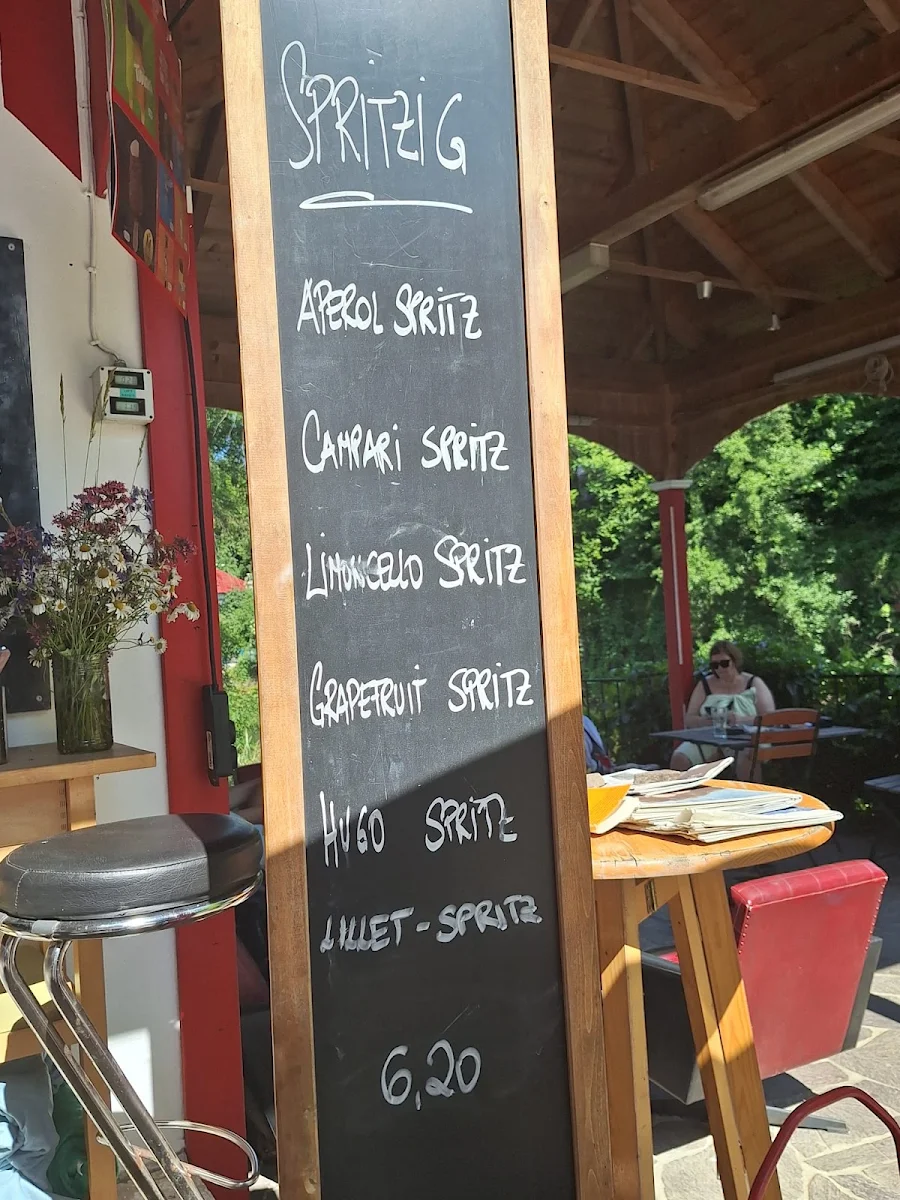 SPRITZIG
APEROL SPRITZ
CAMPARI SPRITZ
LIMONCELLO SPRITZ
GRAPEFRUIT SPRITZ
HUGO SPRITZ
LILLET-SPRITZ
6,20